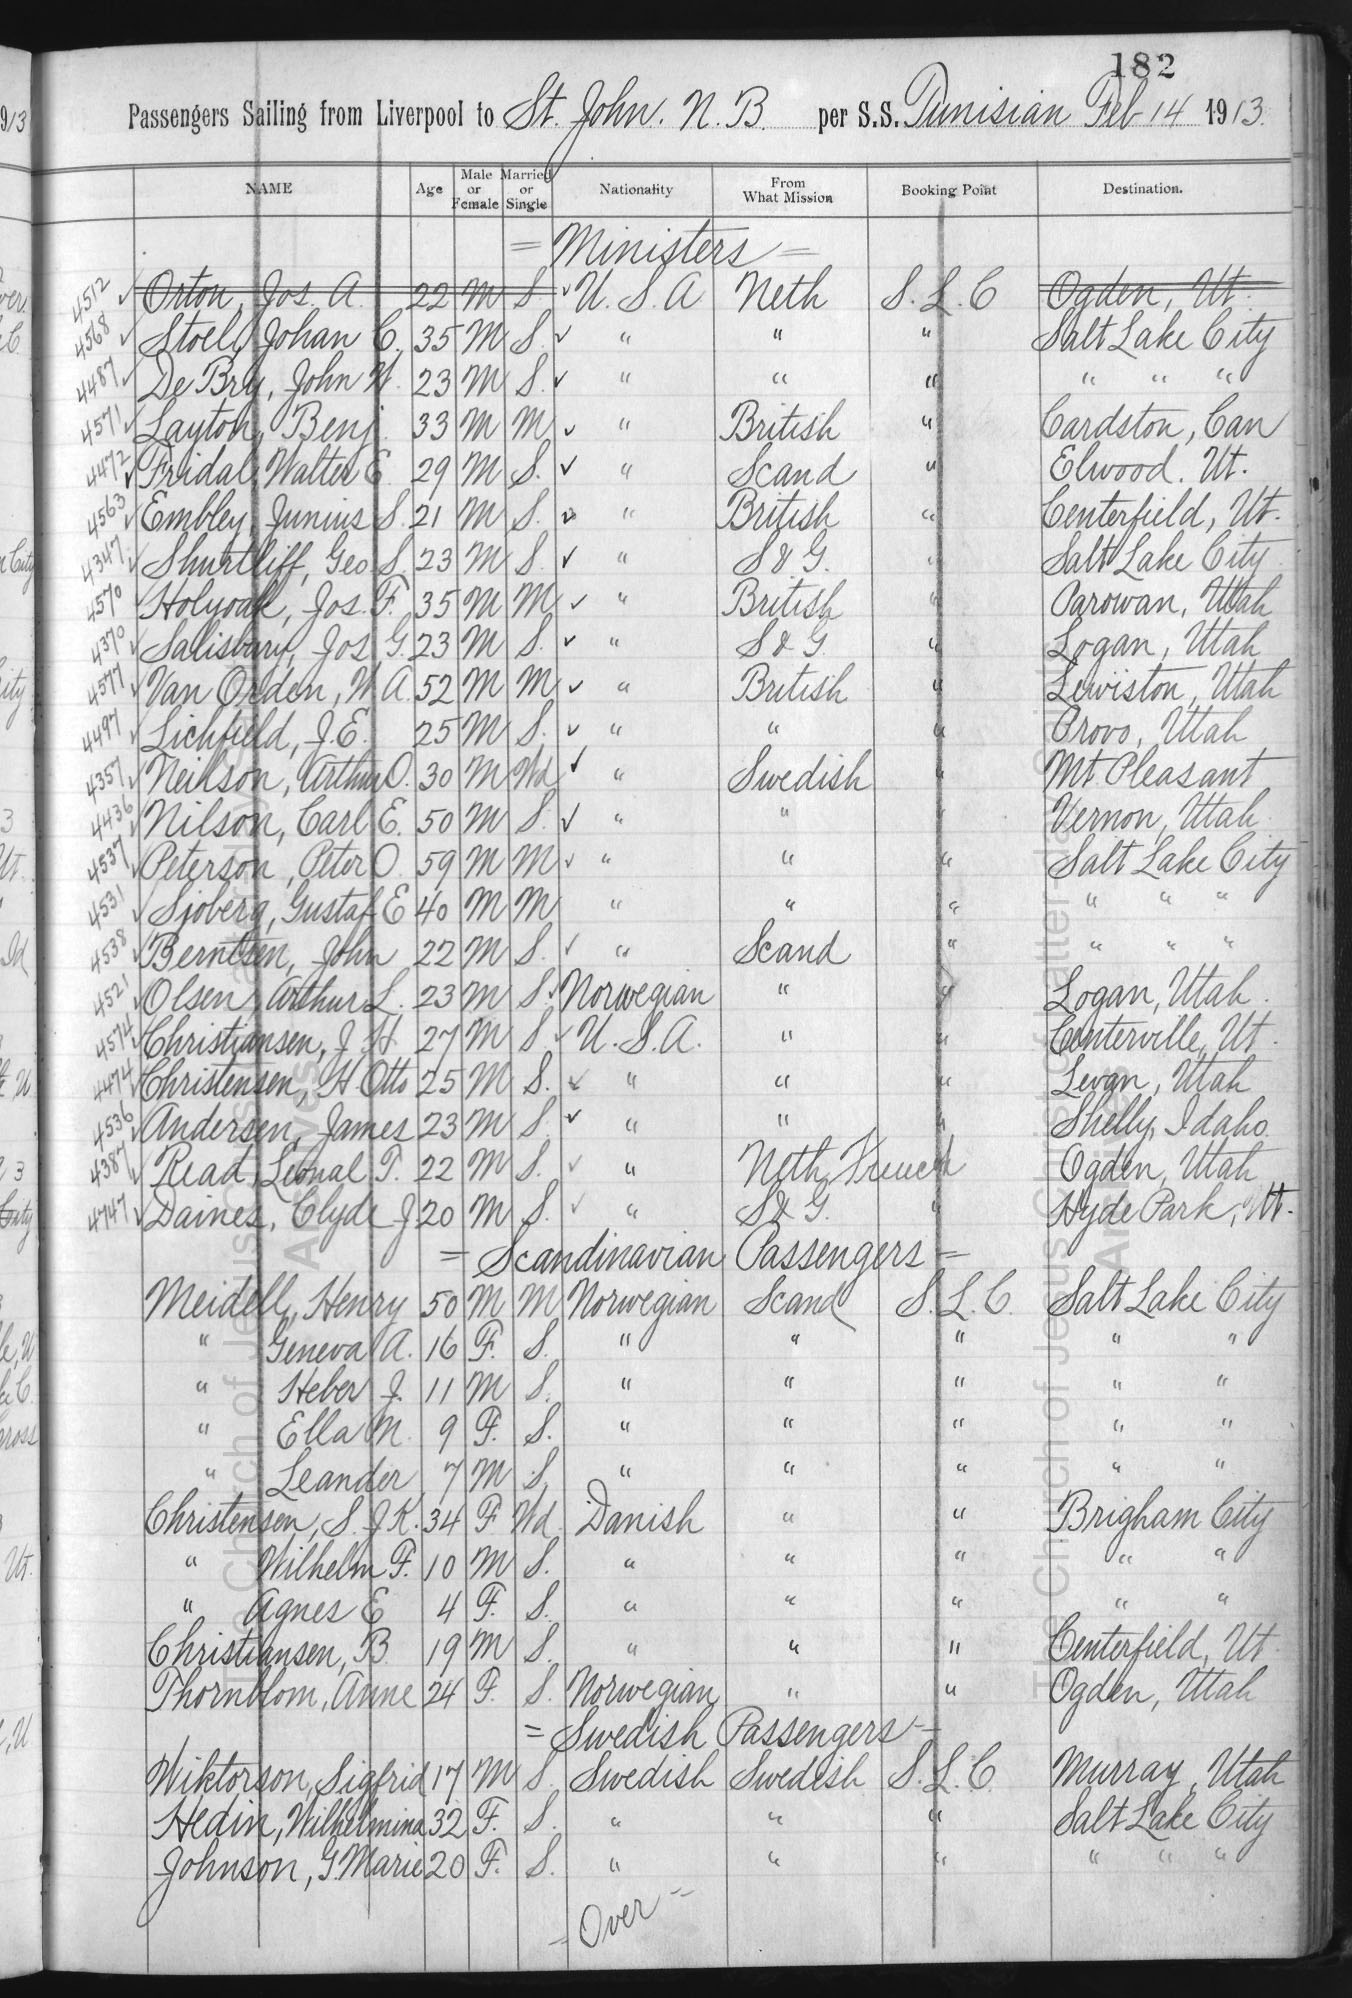 182
Passengers Sailing from Liverpool to St. John. N. B. per S.S. Tunisian Feb 14 1913.
NAME Age Male or Female Married or Single Nationality From What Mission Booking Point Destination.
= Ministers =
4512 ✓ Orton, Jos. A. 22 M S. ✓ U. S. A Neth S. L. C Ogden, Ut.
4568 ✓ Stoel, Johan C. 35 M S. ✓ " " " Salt Lake City
4487 ✓ De Bry, John W. 23 M S. ✓ " " " " " "
4571 ✓ Layton, Benj. 33 M M ✓ " British " Cardston, Can
4472 ✓ Fridal, Walter E. 29 M S. ✓ " Scand " Elwood. Ut.
4563 ✓ Embley, Junius S. 21 M S. ✓ " British " Centerfield, Ut.
4347 ✓ Shurtliff, Geo. S. 23 M S. ✓ " S & G. " Salt Lake City
4570 ✓ Holyoak, Jos. F. 35 M M ✓ " British " Parowan, Utah
4370 ✓ Salisbury, Jos. G. 23 M S. ✓ " S & G. " Logan, Utah
4577 ✓ Van Orden, W. A. 52 M M ✓ " British " Lewiston, Utah
4497 ✓ Lichfield, J. E. 25 M S. ✓ " " " Provo, Utah
4357 ✓ Neilson, Arthur O. 30 M Wd ✓ " Swedish " Mt. Pleasant
4436 ✓ Nilson, Carl E. 50 M S. ✓ " " " Vernon, Utah
4537 ✓ Peterson, Peter O. 59 M M ✓ " " " Salt Lake City
4531 ✓ Sjoberg, Gustaf E 40 M M " " " " " "
4538 ✓ Berntsen, John 22 M S. ✓ " Scand " " " "
4521 ✓ Olsen, Arthur L. 23 M S. ✓ Norwegian " " Logan, Utah.
4574 ✓ Christiansen, J. H. 27 M S. ✓ U. S. A. " " Centerville, Ut.
4474 ✓ Christensen, H. Otto 25 M S. ✓ " " " Levan, Utah
4536 ✓ Andersen, James 23 M S. ✓ " " " Shelly, Idaho.
4387 ✓ Read, Leonal T. 22 M S. ✓ " Neth French Ogden, Utah
4747 ✓ Daines, Clyde J 20 M S. ✓ " S & G. " Hyde Park, Ut.
= Scandinavian Passengers =
Meidell, Henry 50 M M Norwegian Scand S. L. C. Salt Lake City
" Geneva A. 16 F. S. " " " " "
" Heber J. 11 M S. " " " " "
" Ella M. 9 F. S. " " " " "
" Leander 7 M S. " " " " "
Christensen, S. J. K. 34 F Wd. Danish " " Brigham City
" Wilhelm F. 10 M S. " " " " "
" Agnes E 4 F. S. " " " " "
Christiansen, B. 19 M S. " " " Centerfield, Ut.
Thornblom, Anne 24 F. S. Norwegian " " Ogden, Utah
= Swedish Passengers =
Wiktorson, Sigfrid 17 M S. Swedish Swedish S. L. C. Murray, Utah
Hedin, Wilhelmina 32 F. S. " " " Salt Lake City
Johnson, G. Marie 20 F. S. " " " " " "
= Over =